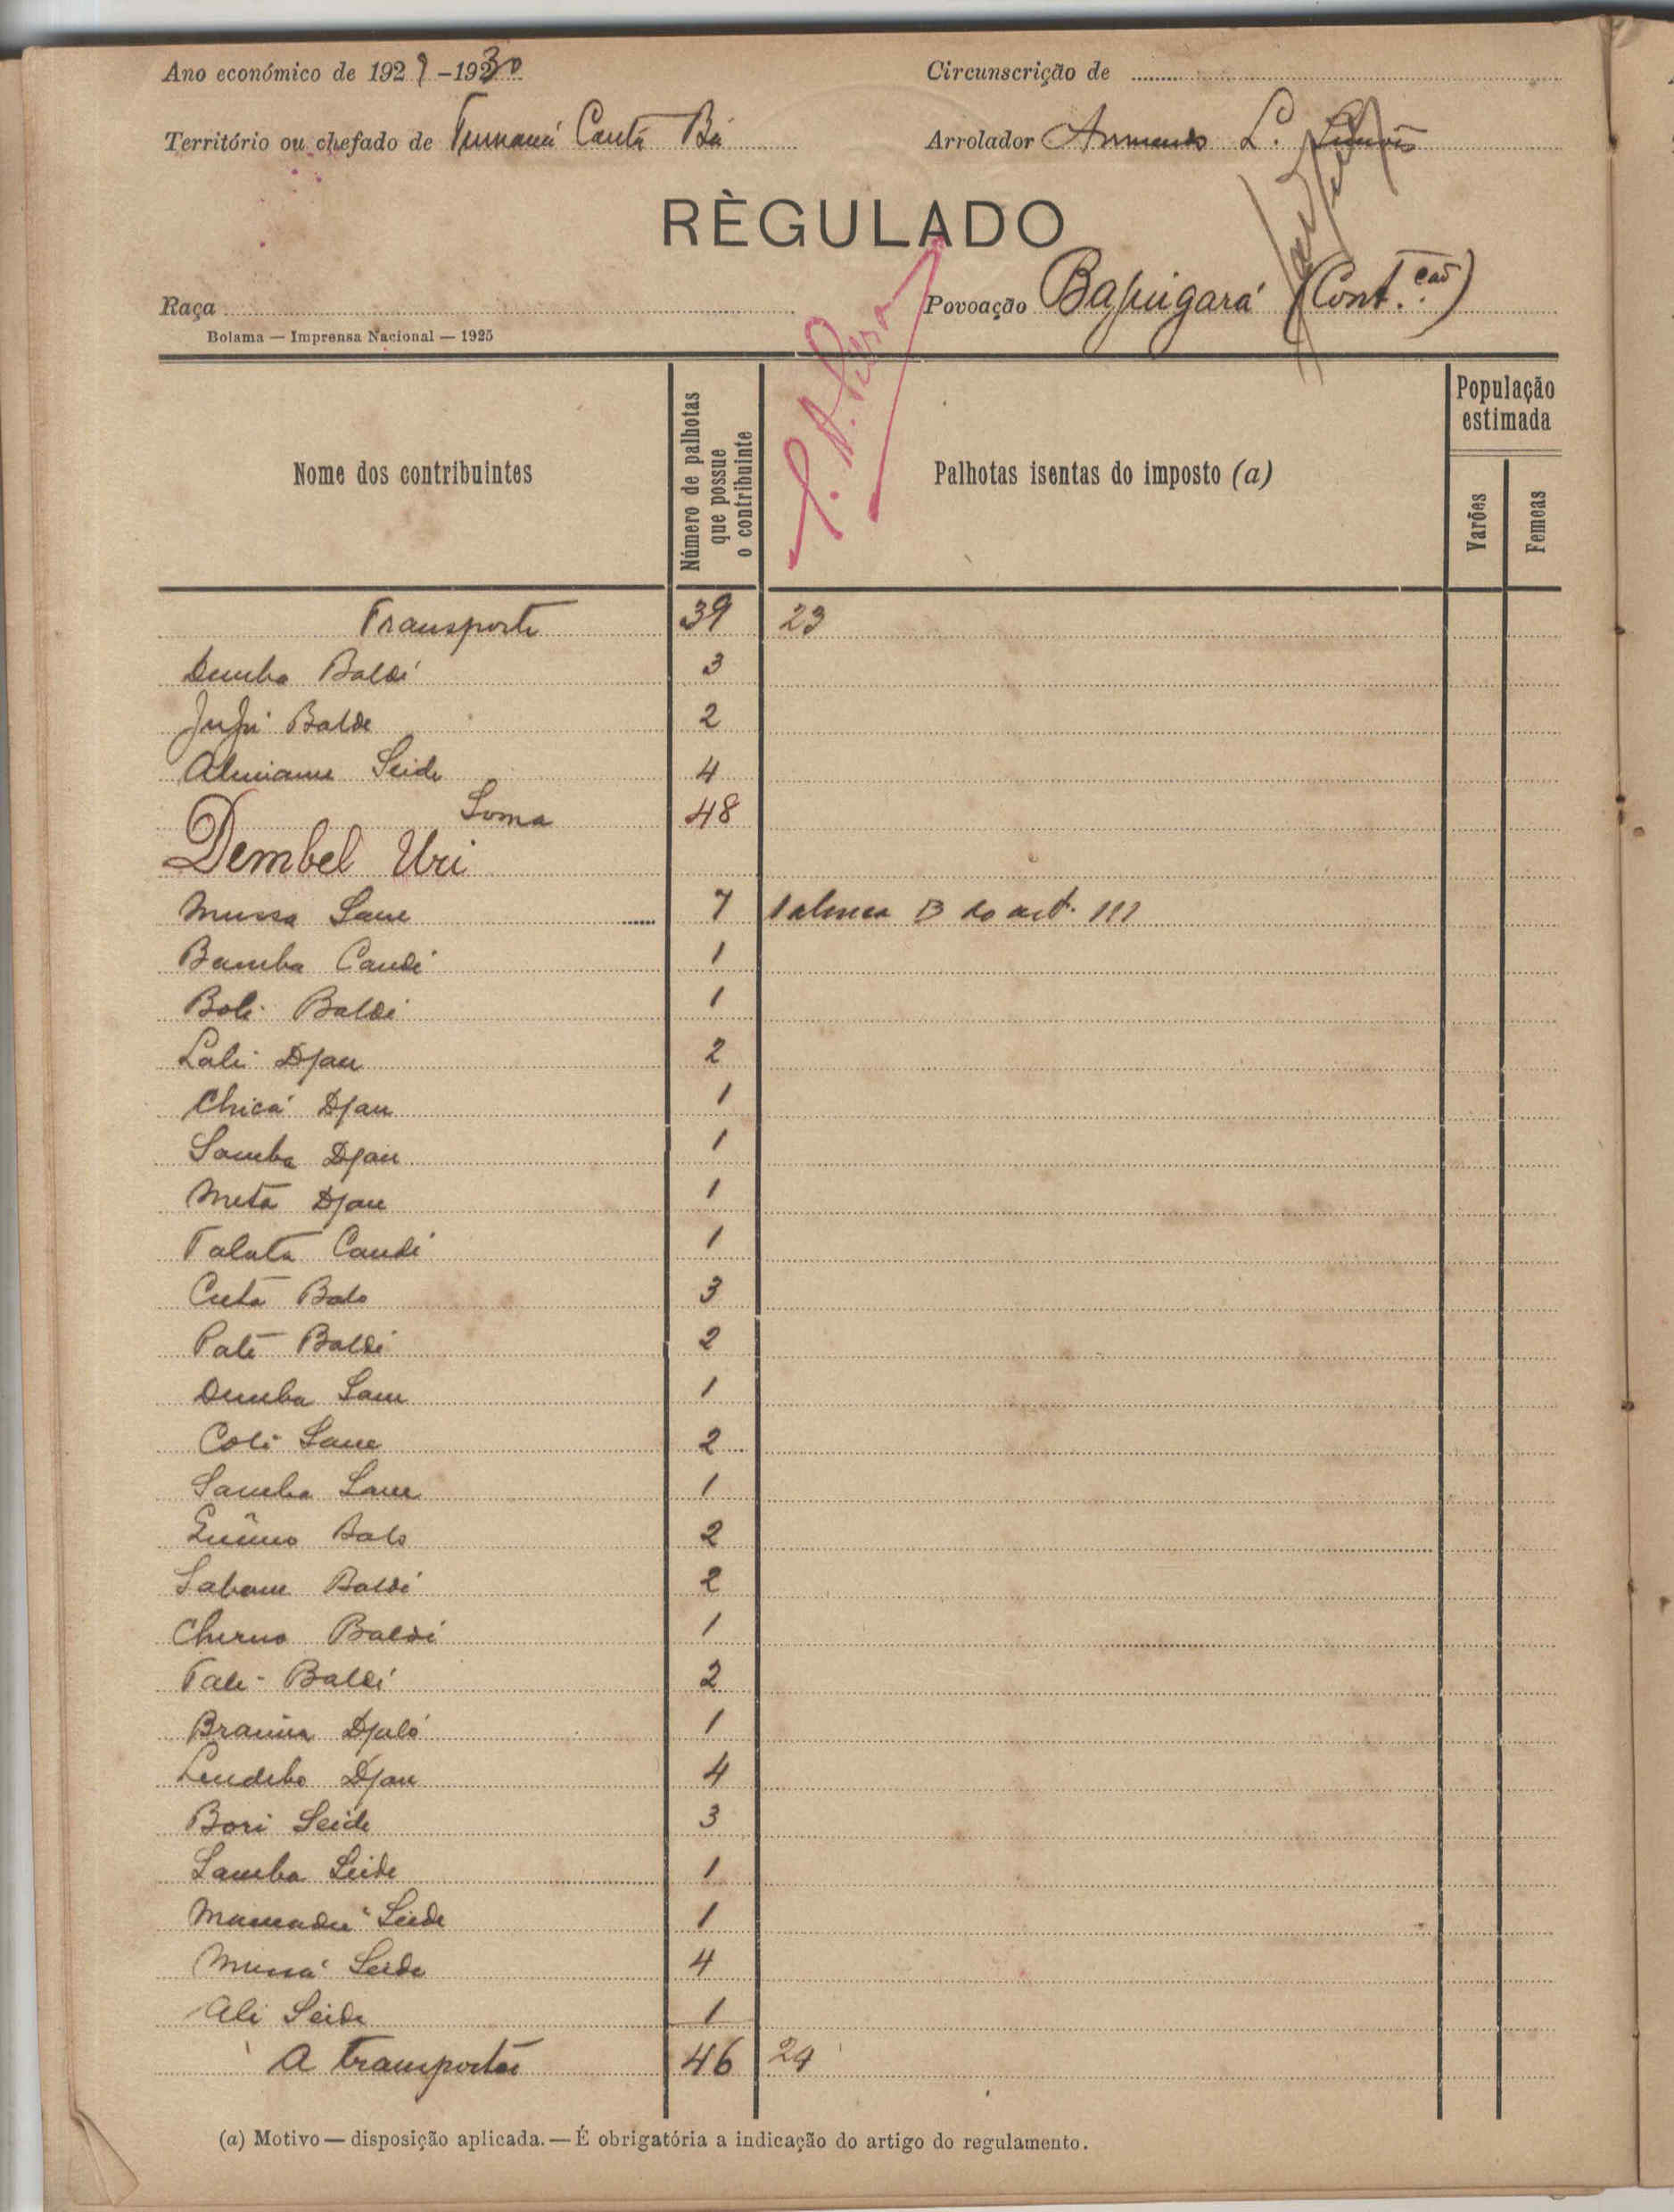 Ano económico de 1929-1930
Circunscrição de
Território ou chefado de Tumaná Cantá Bá
Arrolador Armando L.
RÈGULADO
Raça
Povoação Bapugará (Cont.ção)
Bolama — Imprensa Nacional — 1925
Nome dos contribuintes
Número de palhotas que possue o contribuinte
Palhotas isentas do imposto (a)
População estimada
Varões
Femeas
Transporte 39 23
Demba Baldé 3
Baldé 2
Seide 4
Soma 48
Dembel Uri
Mussa Sane 7 1 alinea B do art. 111
Bamba Candé 1
Baldé 1
Lali Djau 2
Chicá Djau 1
Samba Djau 1
Metá Djau 1
Talata Candé 1
Cutá Balo 3
Paté Baldé 2
Demba Sane 1
Coli Sane 2
Samba Sane 1
Balo 2
Baldé 2
Cherno Baldé 1
Baldé 2
Braima Djaló 1
Djau 4
Bori Seide 3
Samba Seide 1
Mamadu Seide 1
Mussá Seide 4
Ali Seide 1
A transportar 46 24
(a) Motivo — disposição aplicada. — É obrigatória a indicação do artigo do regulamento.